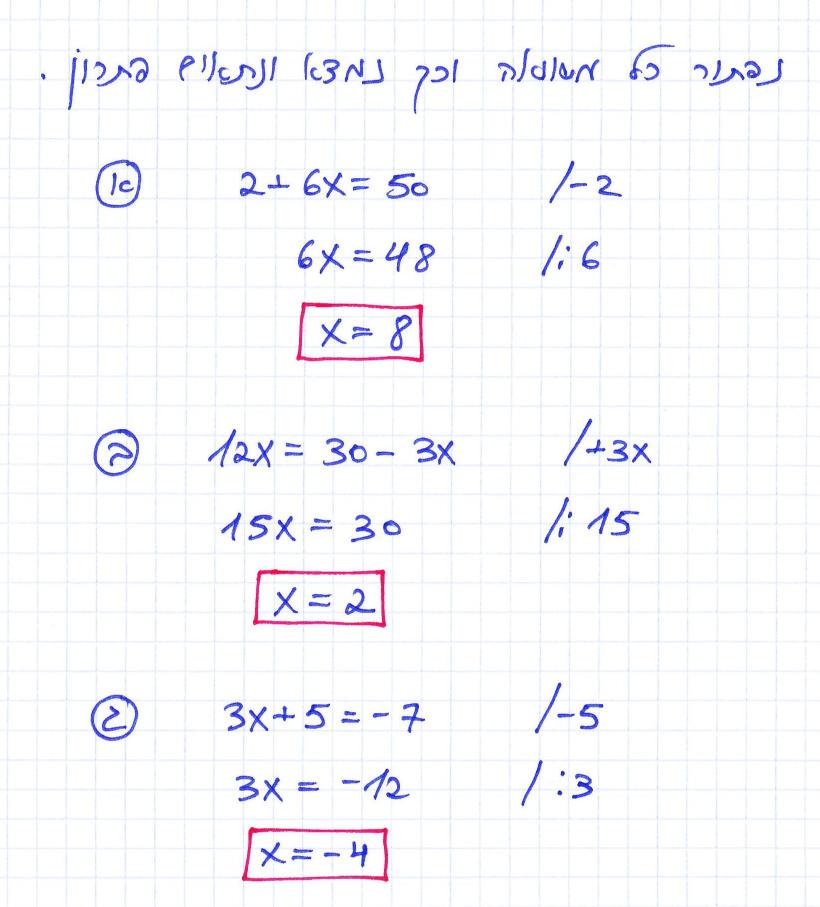 נפתור כל משוואה וכך נמצא ונתאים פתרון.
א 2 + 6x = 50 /-2
6x = 48 /:6
x = 8
ב 12x = 30 - 3x /+3x
15x = 30 /:15
x = 2
ג 3x + 5 = -7 /-5
3x = -12 /:3
x = -4